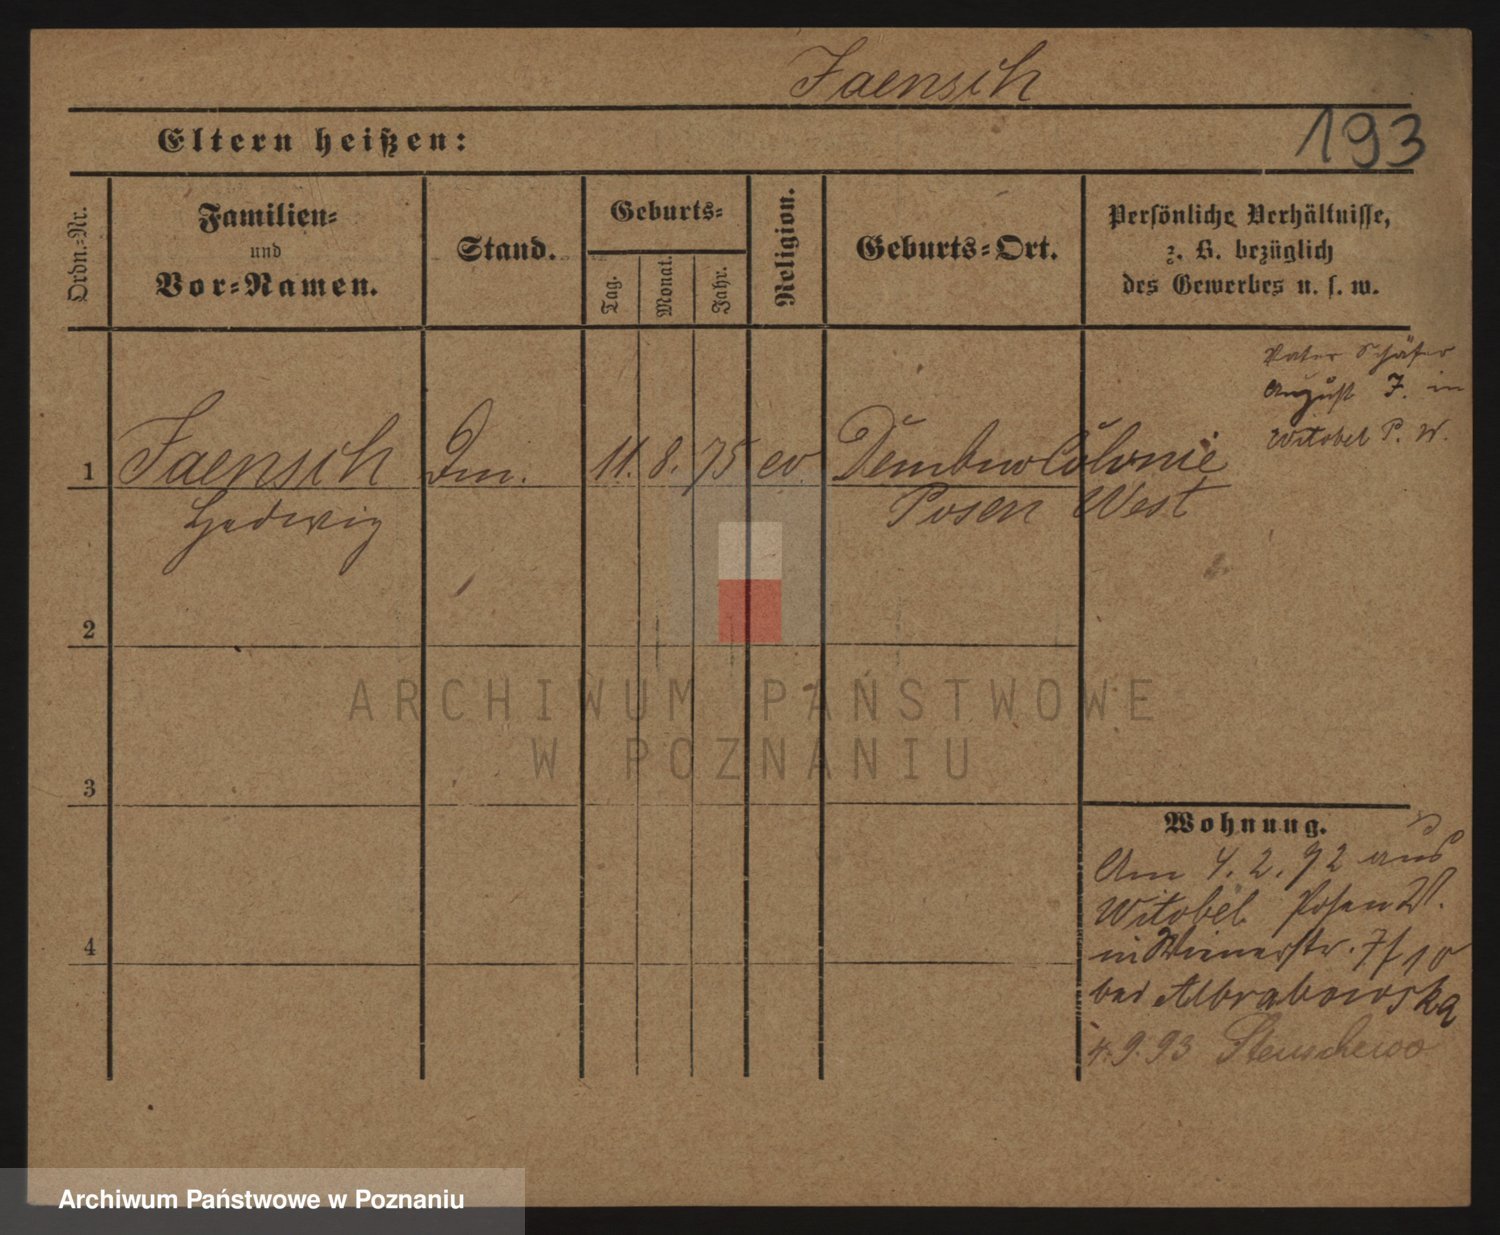 Faensch
193
Eltern heißen:
Ordn.-Nr.
Familien-
und
Vor-Namen.
Stand.
Geburts-
Tag.
Monat.
Jahr.
Religion.
Geburts-Ort.
Persönliche Verhältnisse,
z. B. bezüglich
des Gewerbes u. s. w.
Vater Schäfer
August F. in
Witobel P. W.
1 Faensch 11. 8. 75 ev. Dembno Colonie
Hedwig Posen West
2
ARCHIWUM PAŃSTWOWE
W POZNANIU
3
Wohnung.
Am 4. 2. 92 aus
Witobel Posen W.
in Wienerstr. 7/10
bei
4. 9. 93 Stenschewo
4
Archiwum Państwowe w Poznaniu